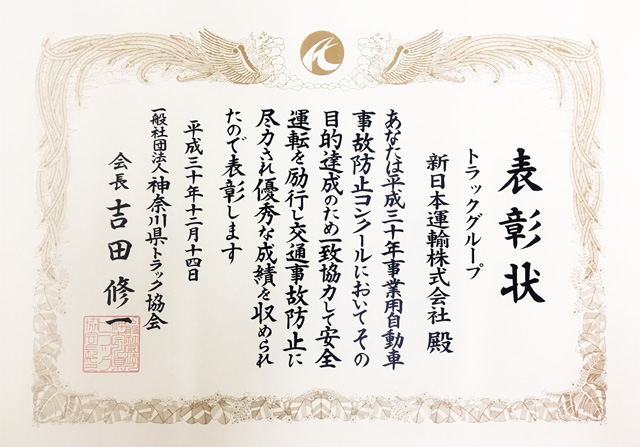 表彰状
トラックグループ
新日本運輸株式会社 殿
あなたは平成三十年事業用自動車
事故防止コンクールにおいてその
目的達成のため一致協力して安全
運転を励行し交通事故防止に
尽力され優秀な成績を収められ
たので表彰します
平成三十年十二月十四日
一般社団法人 神奈川県トラック協会
会長 吉田修一